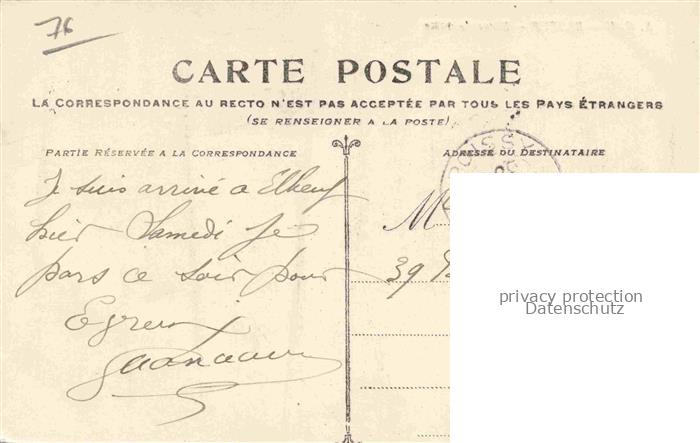 76
CARTE POSTALE
LA CORRESPONDANCE AU RECTO N'EST PAS ACCEPTÉE PAR TOUS LES PAYS ÉTRANGERS
(SE RENSEIGNER A LA POSTE)
PARTIE RÉSERVÉE A LA CORRESPONDANCE
ADRESSE DU DESTINATAIRE
Je suis arrivé a Elbeuf
hier Samedi Je
pars ce soir pour
M
39
privacy protection
Datenschutz